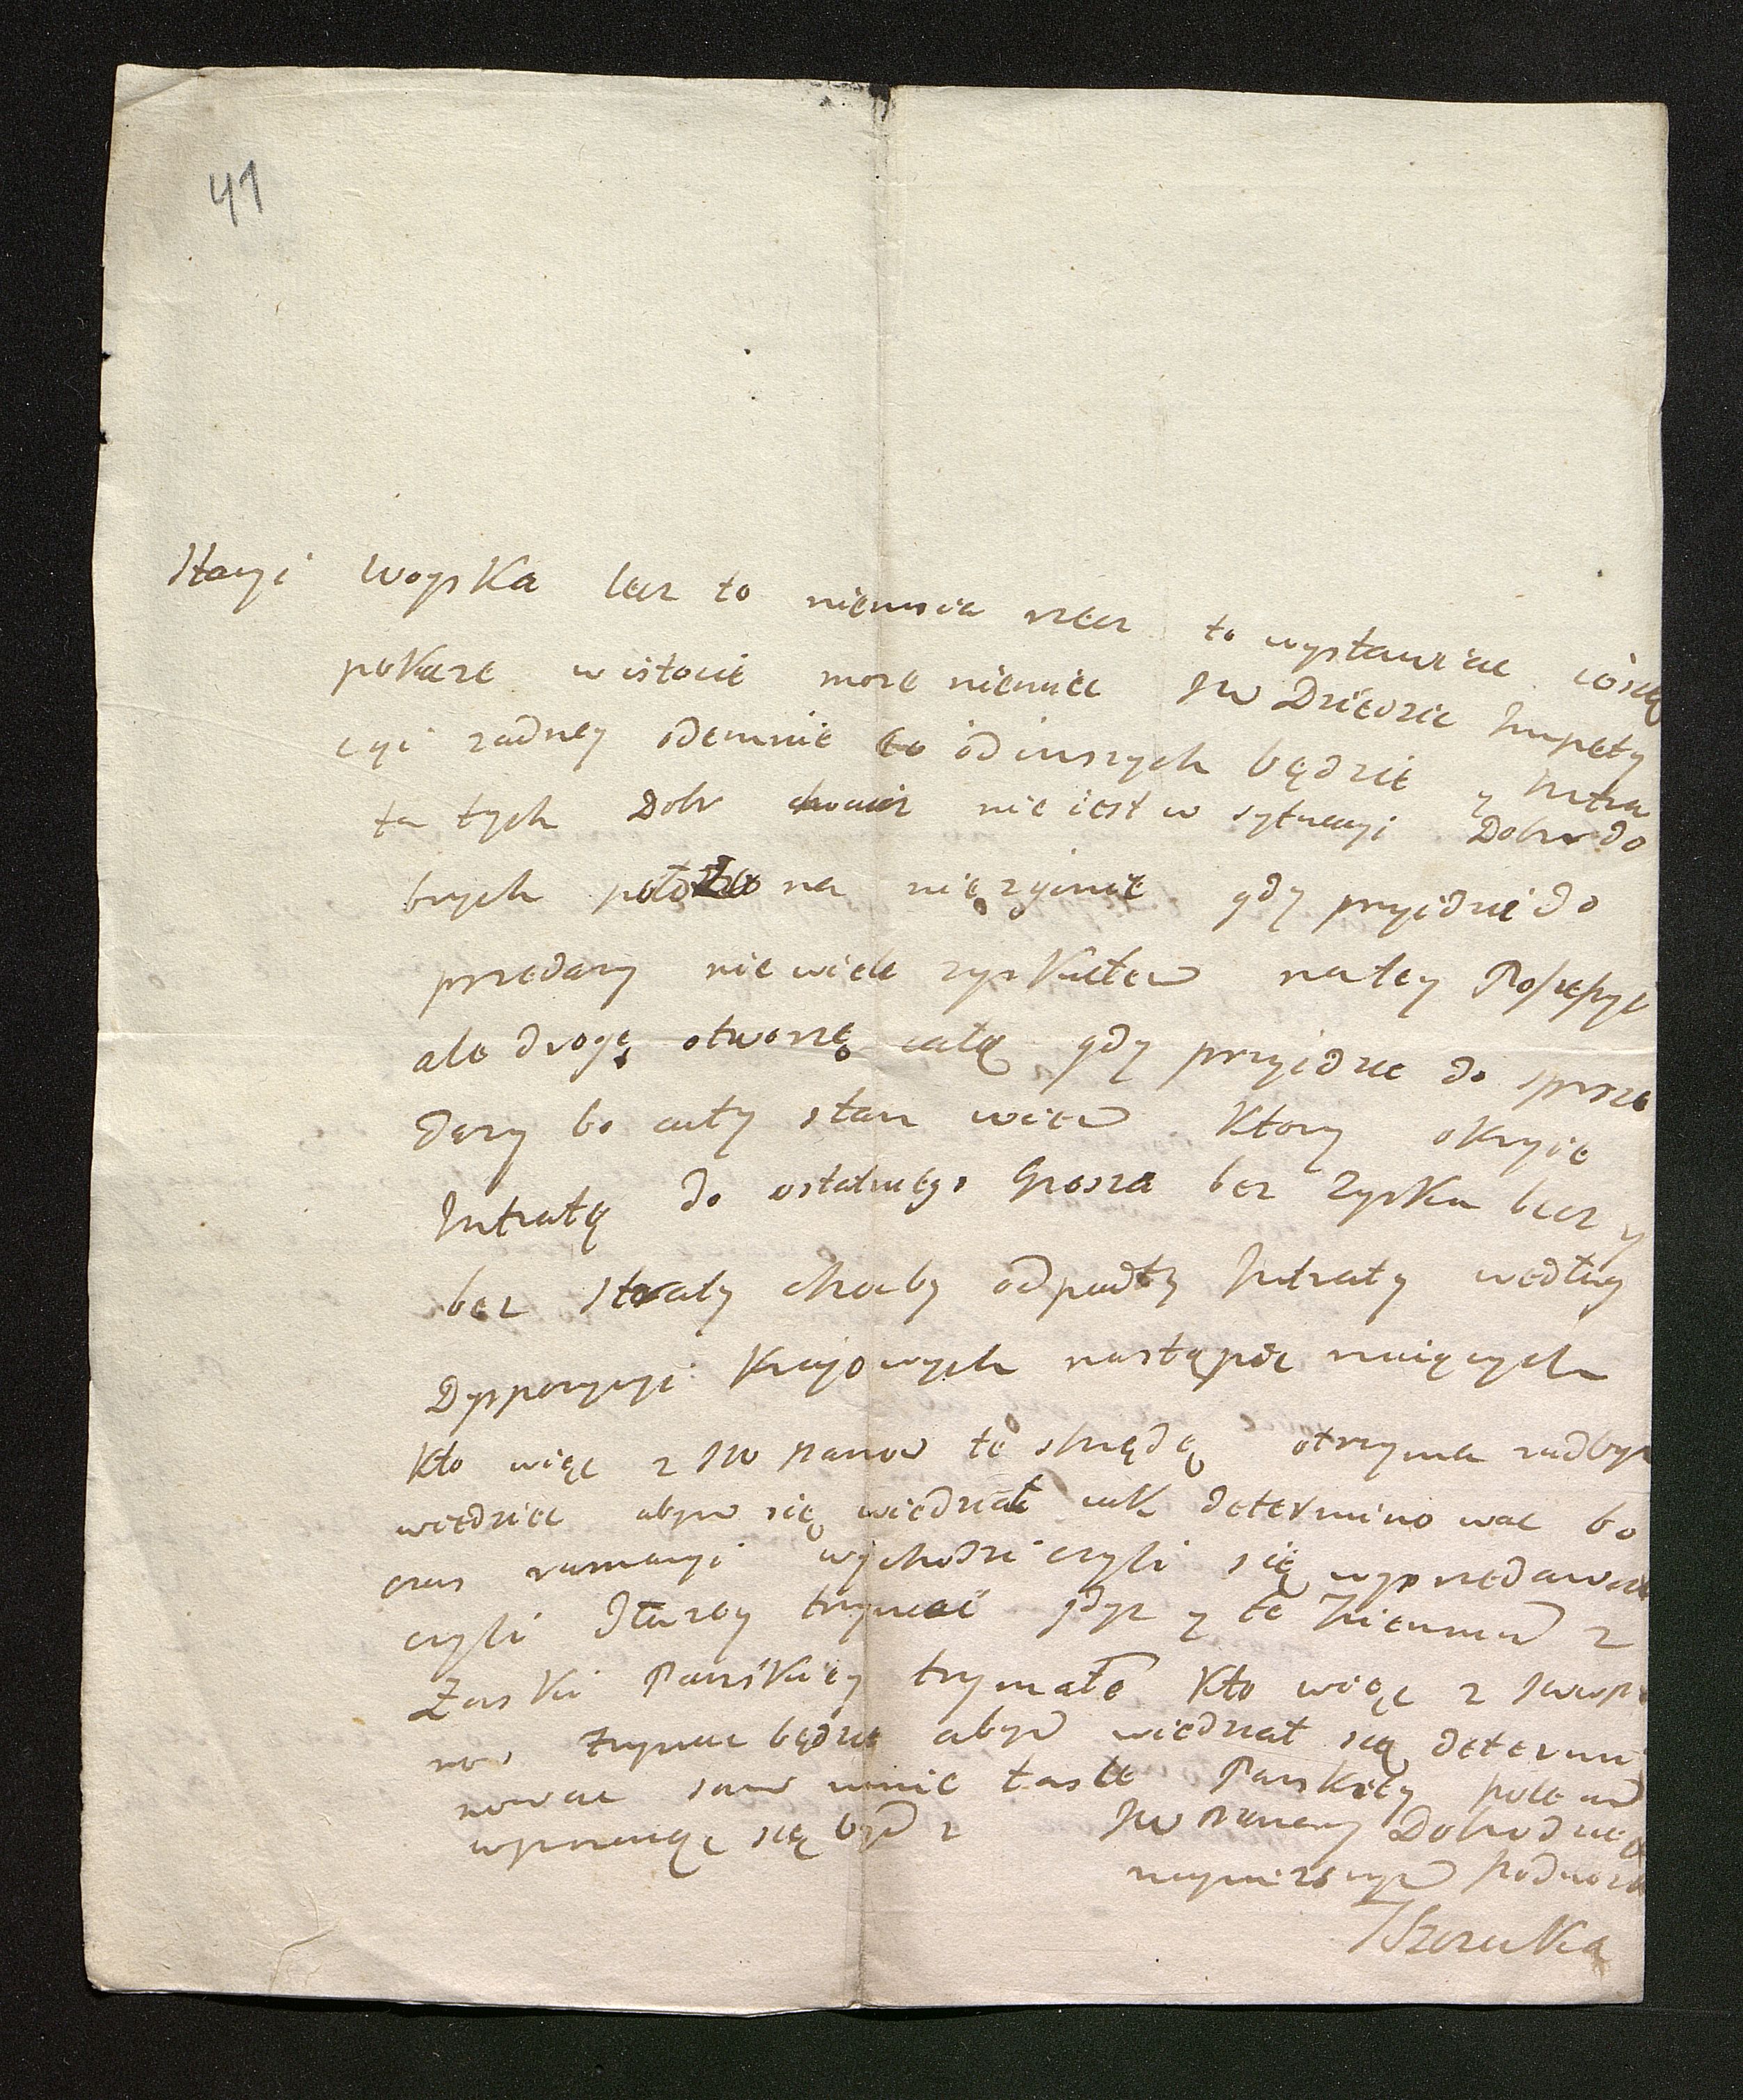 41
stacyi woyska lecz to niemoia rzecz to wystawiac
pokaze wistocie moze niemiec JW Dziedzic Impety
cyi zadney odemnie co odinszych będzie y Intra
ta tych Dobr chociaz nie iest w sytuacyi Dobr do
brych położona nię zginie gdy przyidzie do
przedazy nie wiele zyskałem natey Possessyi
ale drogę otworzę całą gdy przyidzie do sprze
dazy bo cały stan wiem ktory okryie
Intratę do ostatniego Grosza bez zysku lecz y
bez straty choćby odpadły Intraty według
Dyspozycyi Kraiowych nastąpic maiących
Kto więc z JW Panow tę schedę otrzyma radbym
wiedziec abym się wiedział iak determinowac bo
czas rumacyi wychodzi czyli się wyprzedawac
czyli dłuzey trzymać gdyz y te Zienmu z
Łaski Panskiey trzymałe Kto więc z JWW Pa
now trzymac będzie abym wiedział się determi
nowac sam mnie łasce Panskiey polecam
wyznaiąc się bydz JW Panany Dobrodzieia
naynizszym Podnozk
TSzczutka